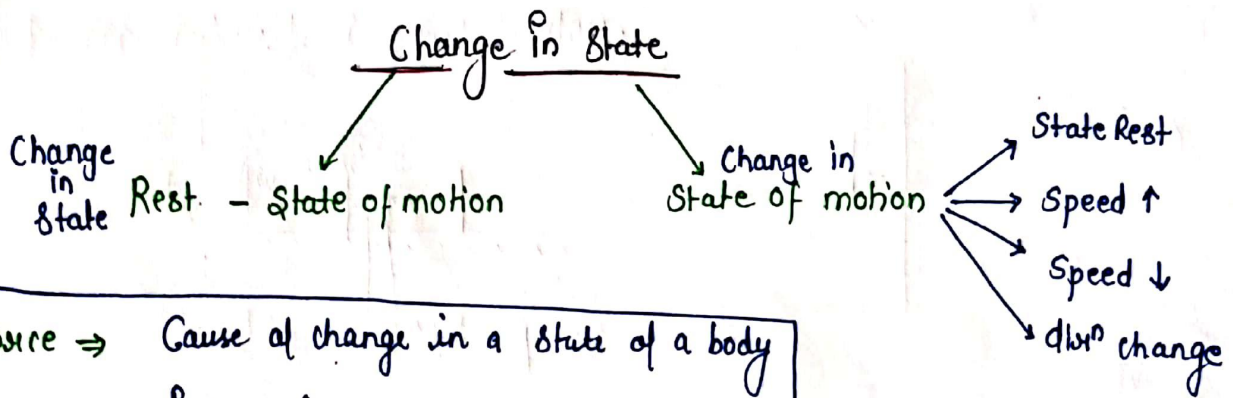 Change in State
Change
in
State
Rest - State of motion
Change in
State of motion
State Rest
Speed ↑
Speed ↓
dirⁿ change
⇒ Cause of change in a state of a body